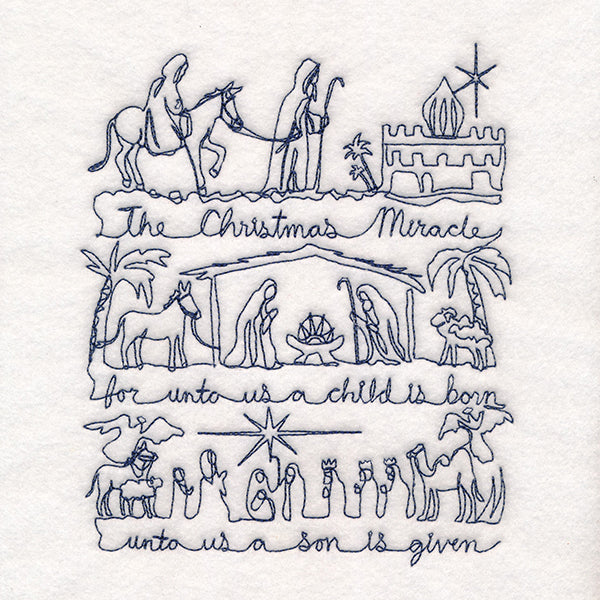 The Christmas Miracle
for unto us a child is born
unto us a son is given